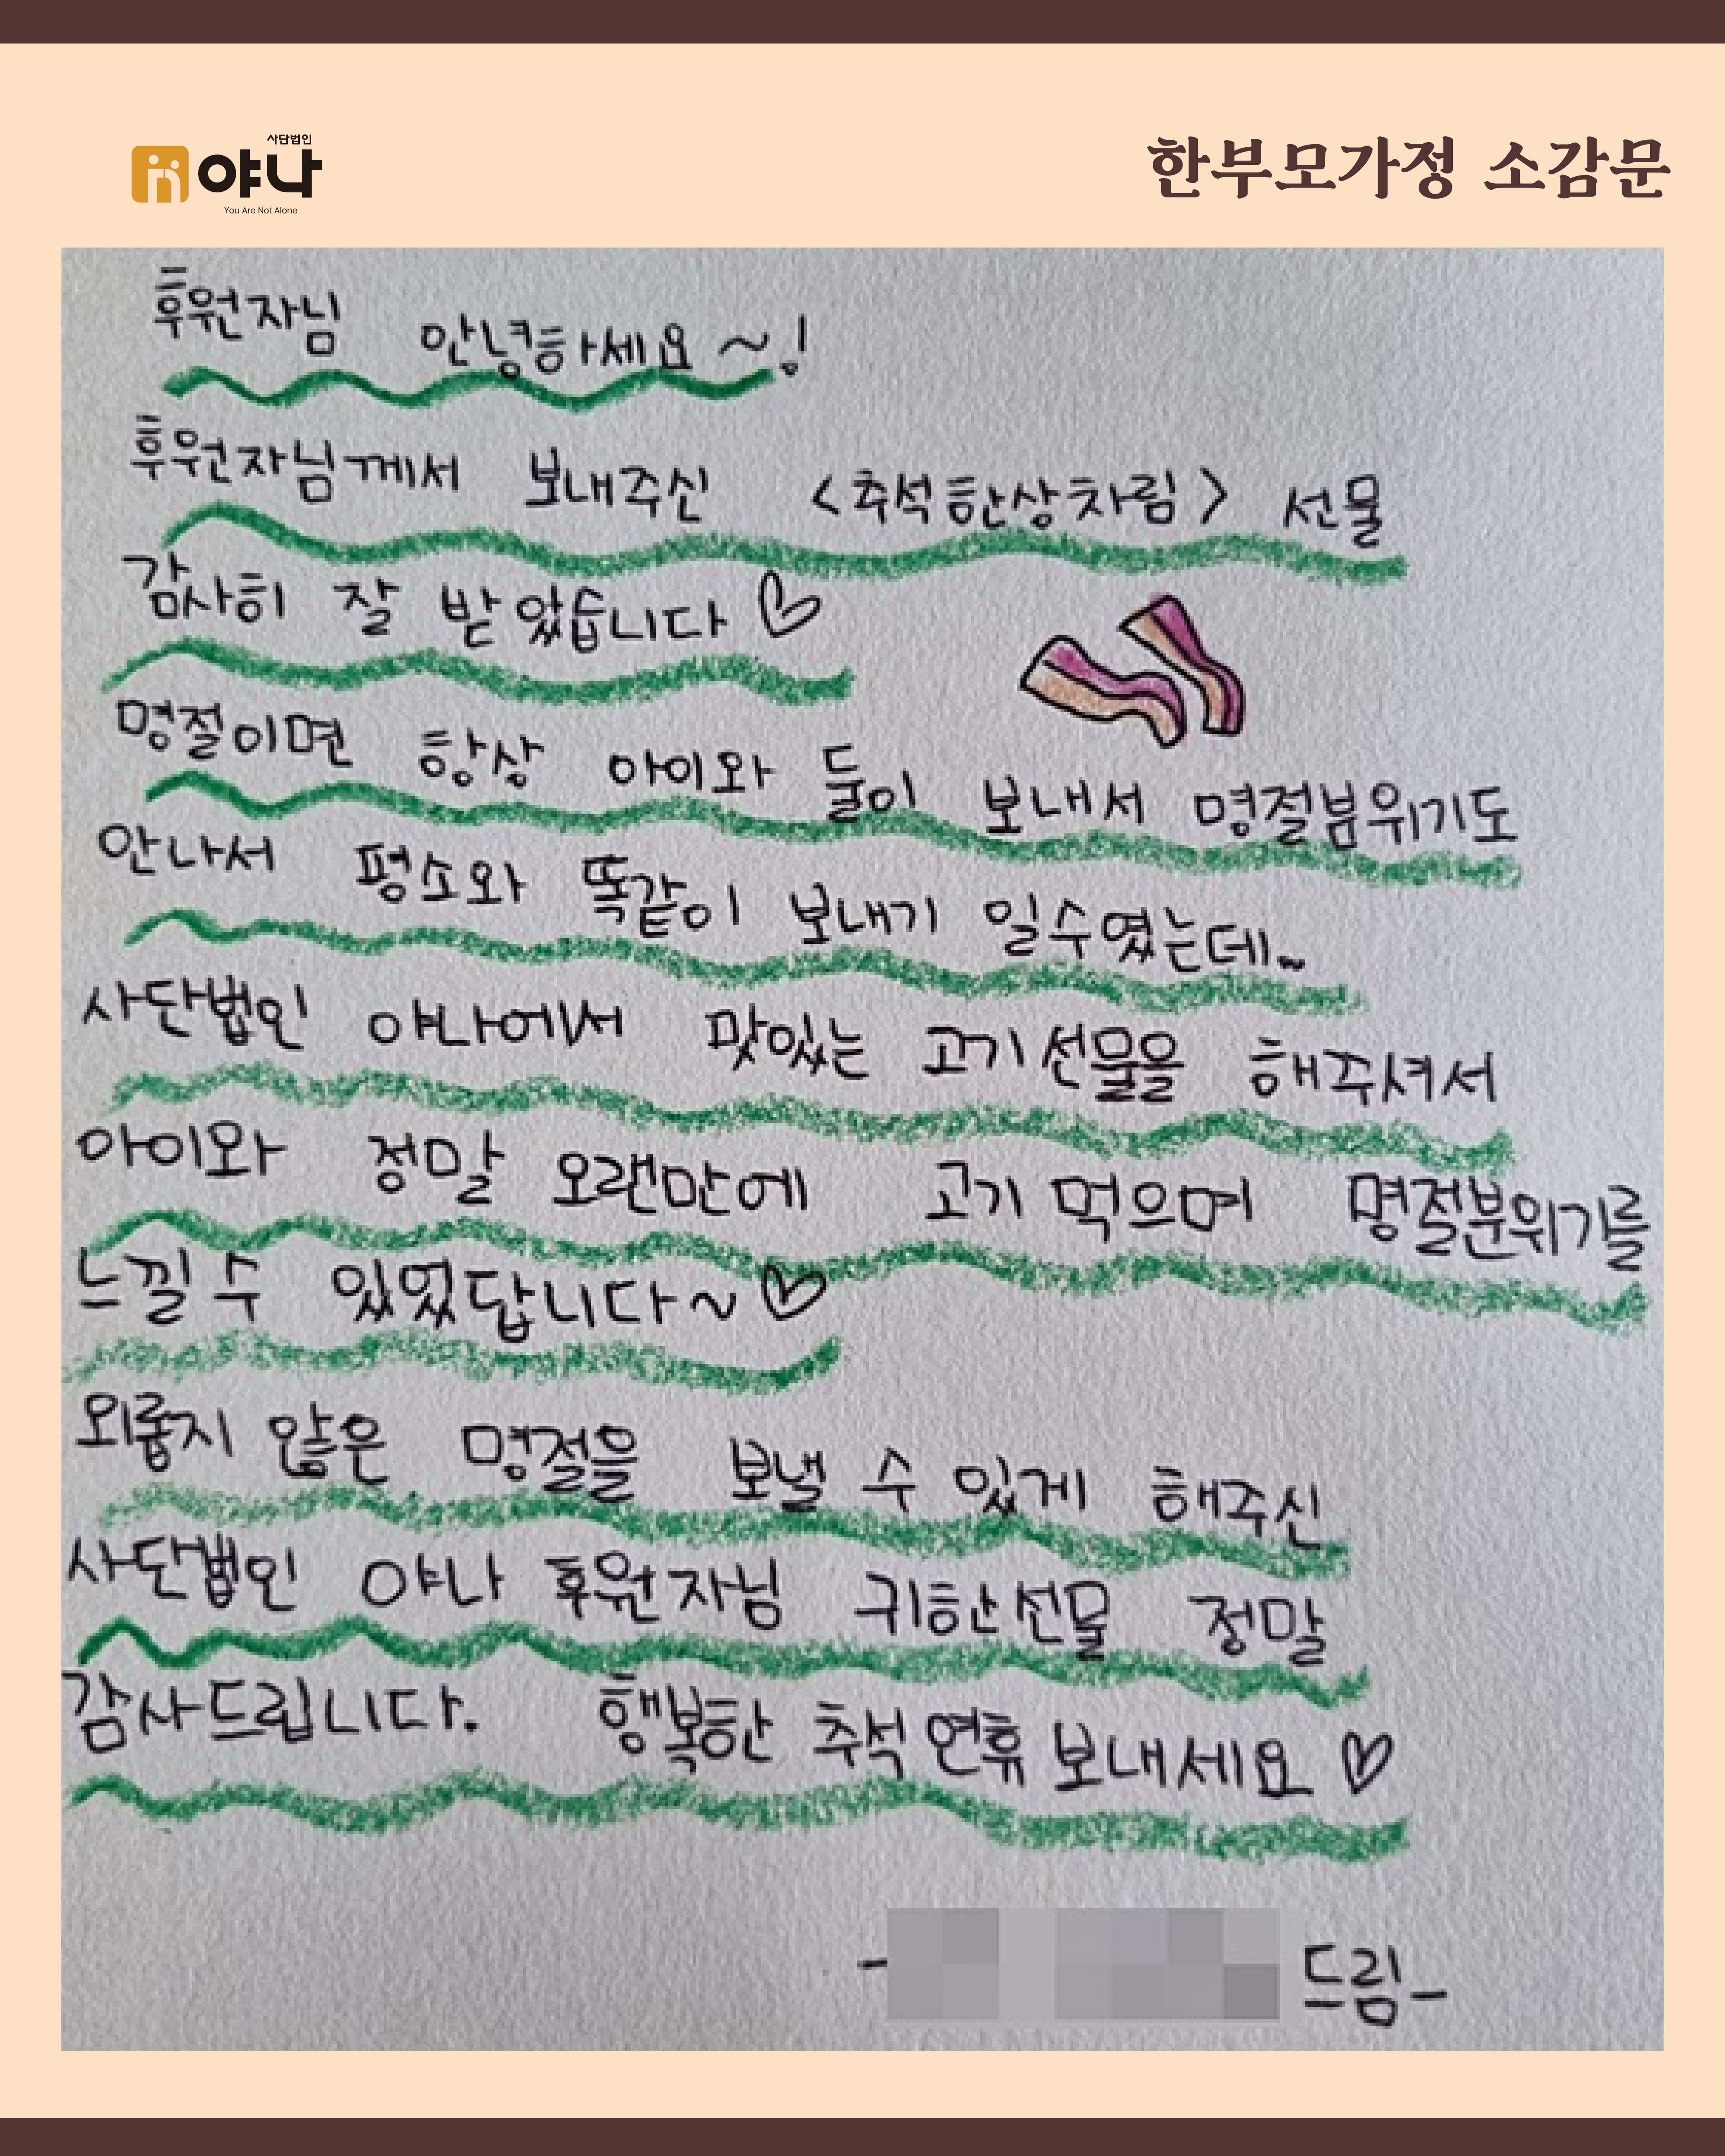 사단법인
야나
You Are Not Alone
한부모가정 소감문
후원자님 안녕하세요~!
후원자님께서 보내주신 <추석한상차림> 선물
감사히 잘 받았습니다♡
명절이면 항상 아이와 둘이 보내서 명절붐위기도
안나서 평소와 똑같이 보내기 일수였는데~
사단법인 야나에서 맛있는 고기선물을 해주셔서
아이와 정말 오랜만에 고기 먹으며 명절분위기를
느낄 수 있었답니다~♡
외롭지 않은 명절을 보낼 수 있게 해주신
사단법인 야나 후원자님 귀한선물 정말
감사드립니다. 행복한 추석 연휴 보내세요♡
- 드림-